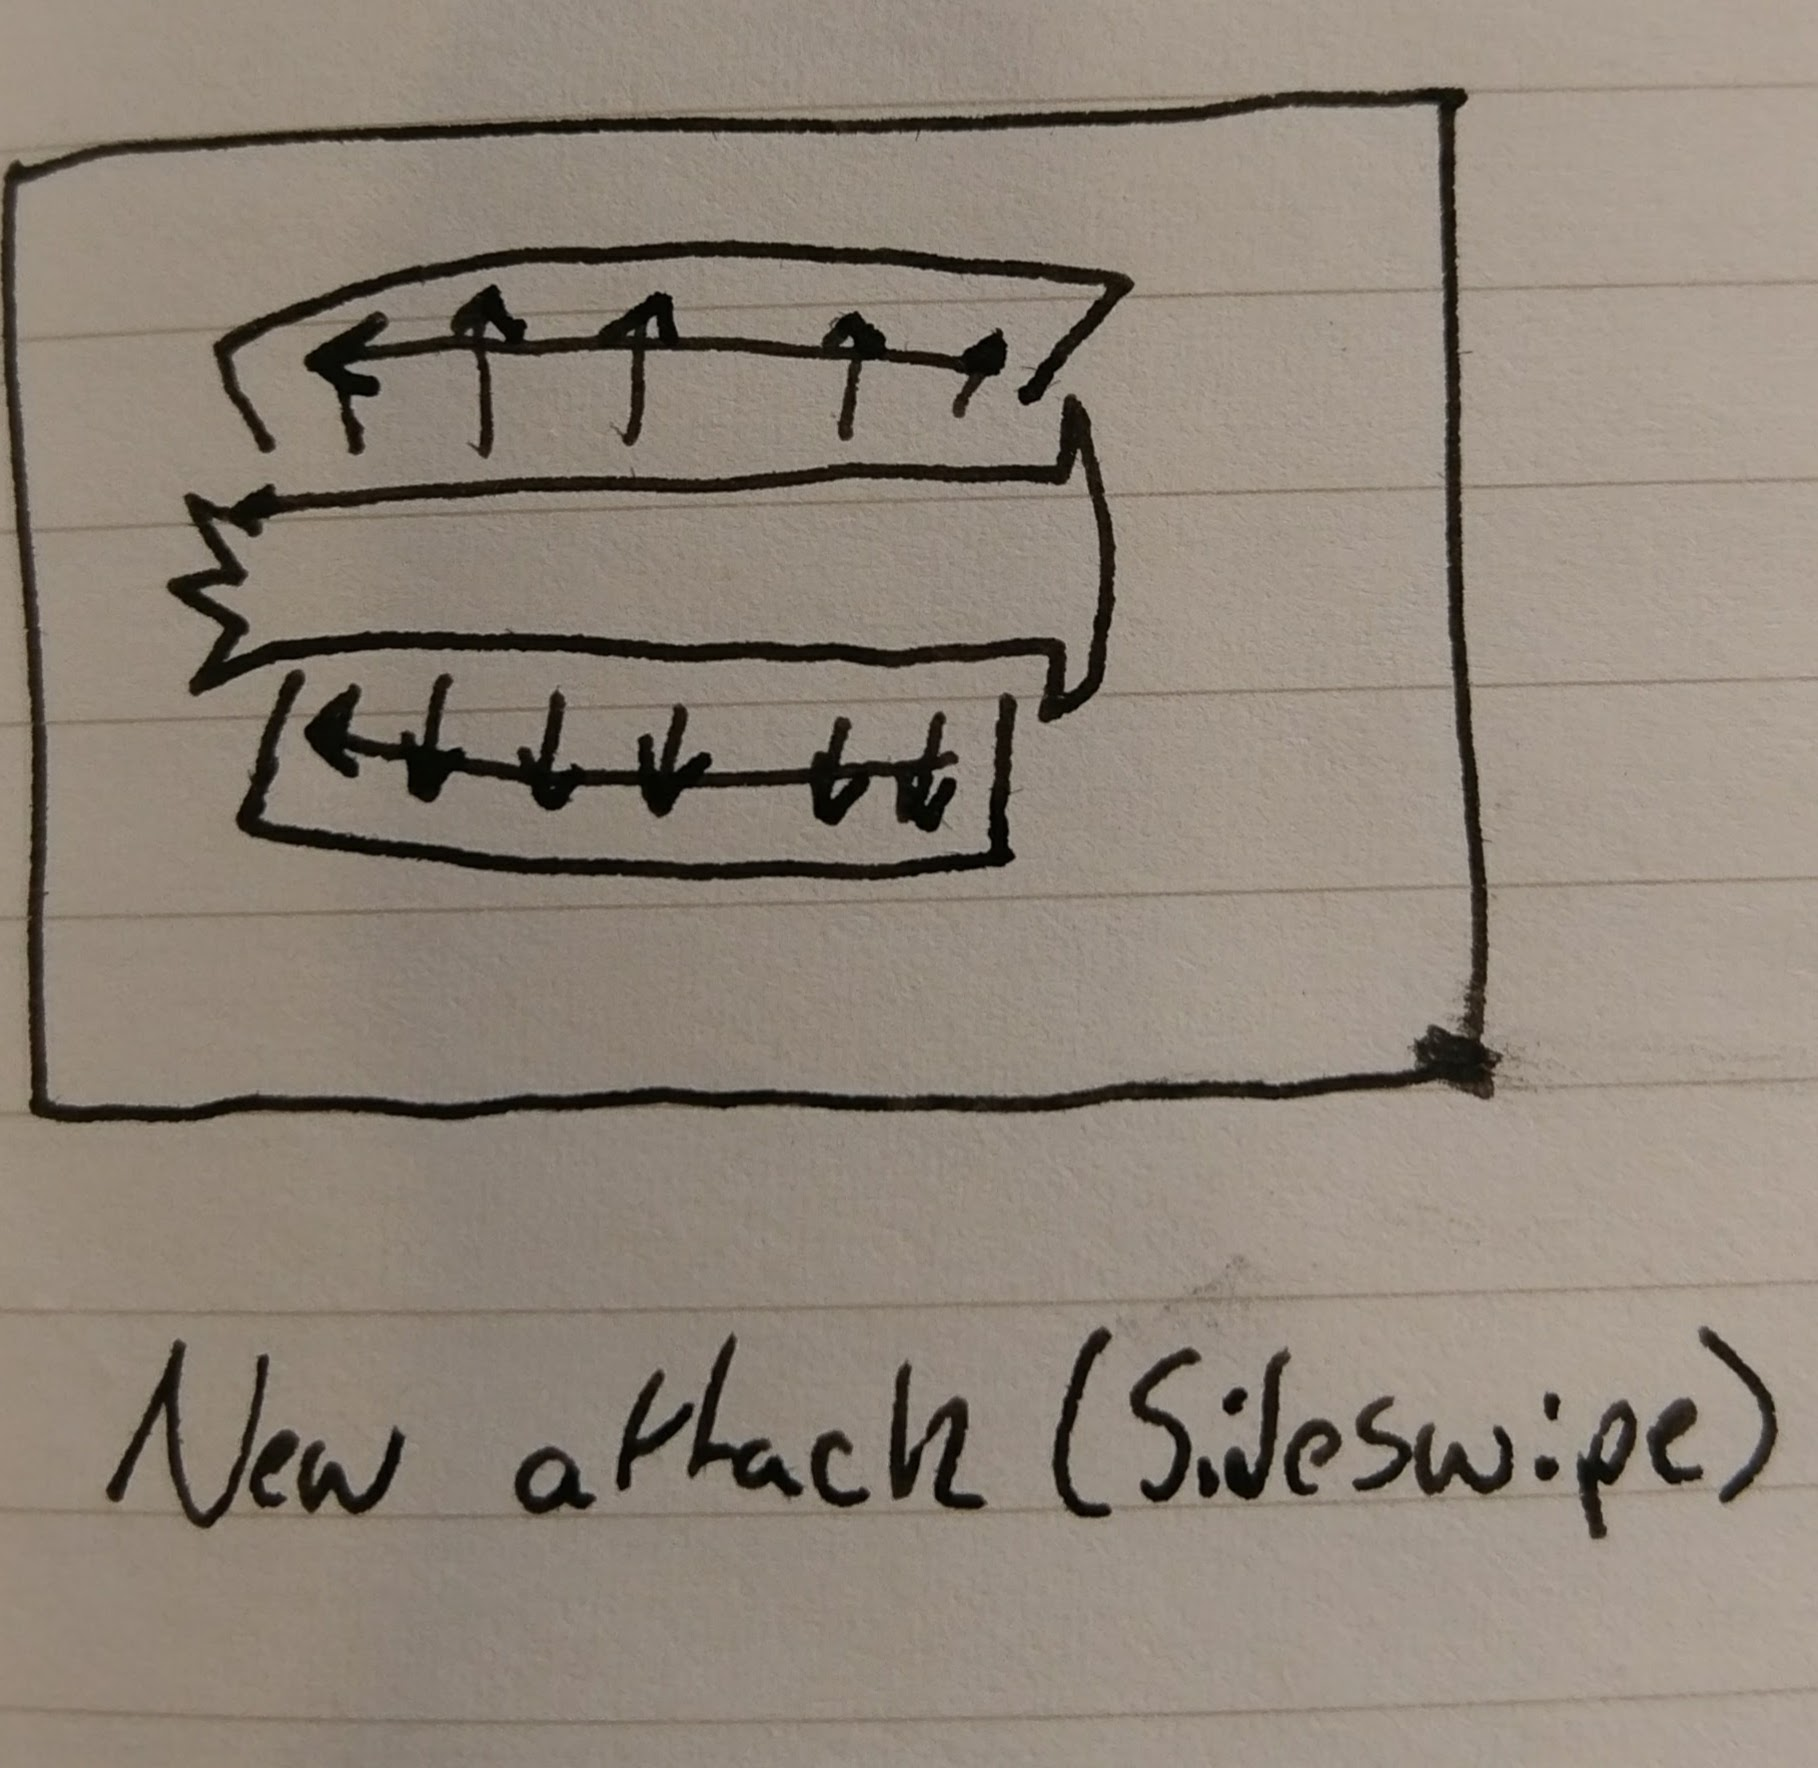 New attack (Sideswipe)